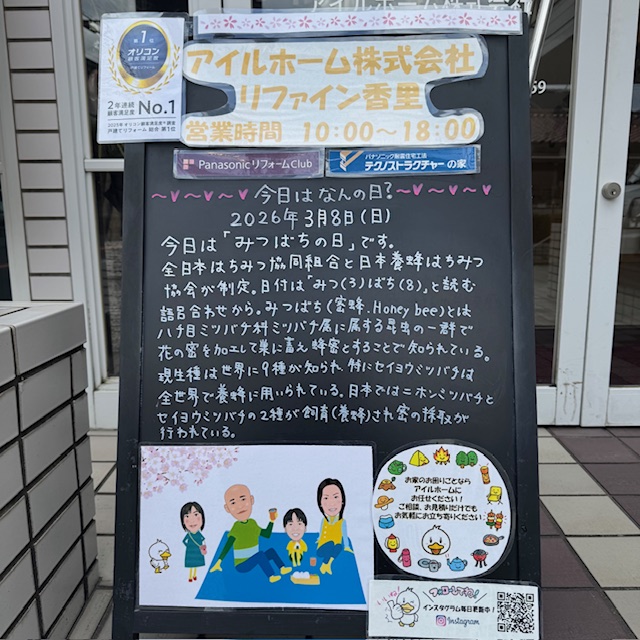 アイルホーム株式会社
第1位
オリコン
顧客満足度
戸建てリフォーム
2年連続
顧客満足度
No.1
2025年 オリコン顧客満足度®調査
戸建てリフォーム 総合 第1位
アイルホーム株式会社
リファイン香里
営業時間 10:00〜18:00
Panasonic リフォームClub
パナソニック耐震住宅工法
テクノストラクチャーの家
59
今日はなんの日?
2026年3月8日(日)
今日は「みつばちの日」です。
全日本はちみつ協同組合と日本養蜂はちみつ
協会が制定。日付は「みつ(3)ばち(8)」と読む
語呂合わせから。みつばち(蜜蜂、Honey bee)とは
ハチ目ミツバチ科ミツバチ属に属する昆虫の一群で
花の蜜を加工して巣に蓄え蜂蜜とすることで知られている。
現生種は世界に9種が知られ 特にセイヨウミツバチは
全世界で養蜂に用いられている。日本ではニホンミツバチと
セイヨウミツバチの2種が飼育(養蜂)され蜜の採取が
行われている。
お家のお困りごとなら
アイルホームに
お任せください!
ご相談、お見積りだけでも
お気軽にお立ち寄りください
フォローしてね!
インスタグラム毎日更新中!
Instagram